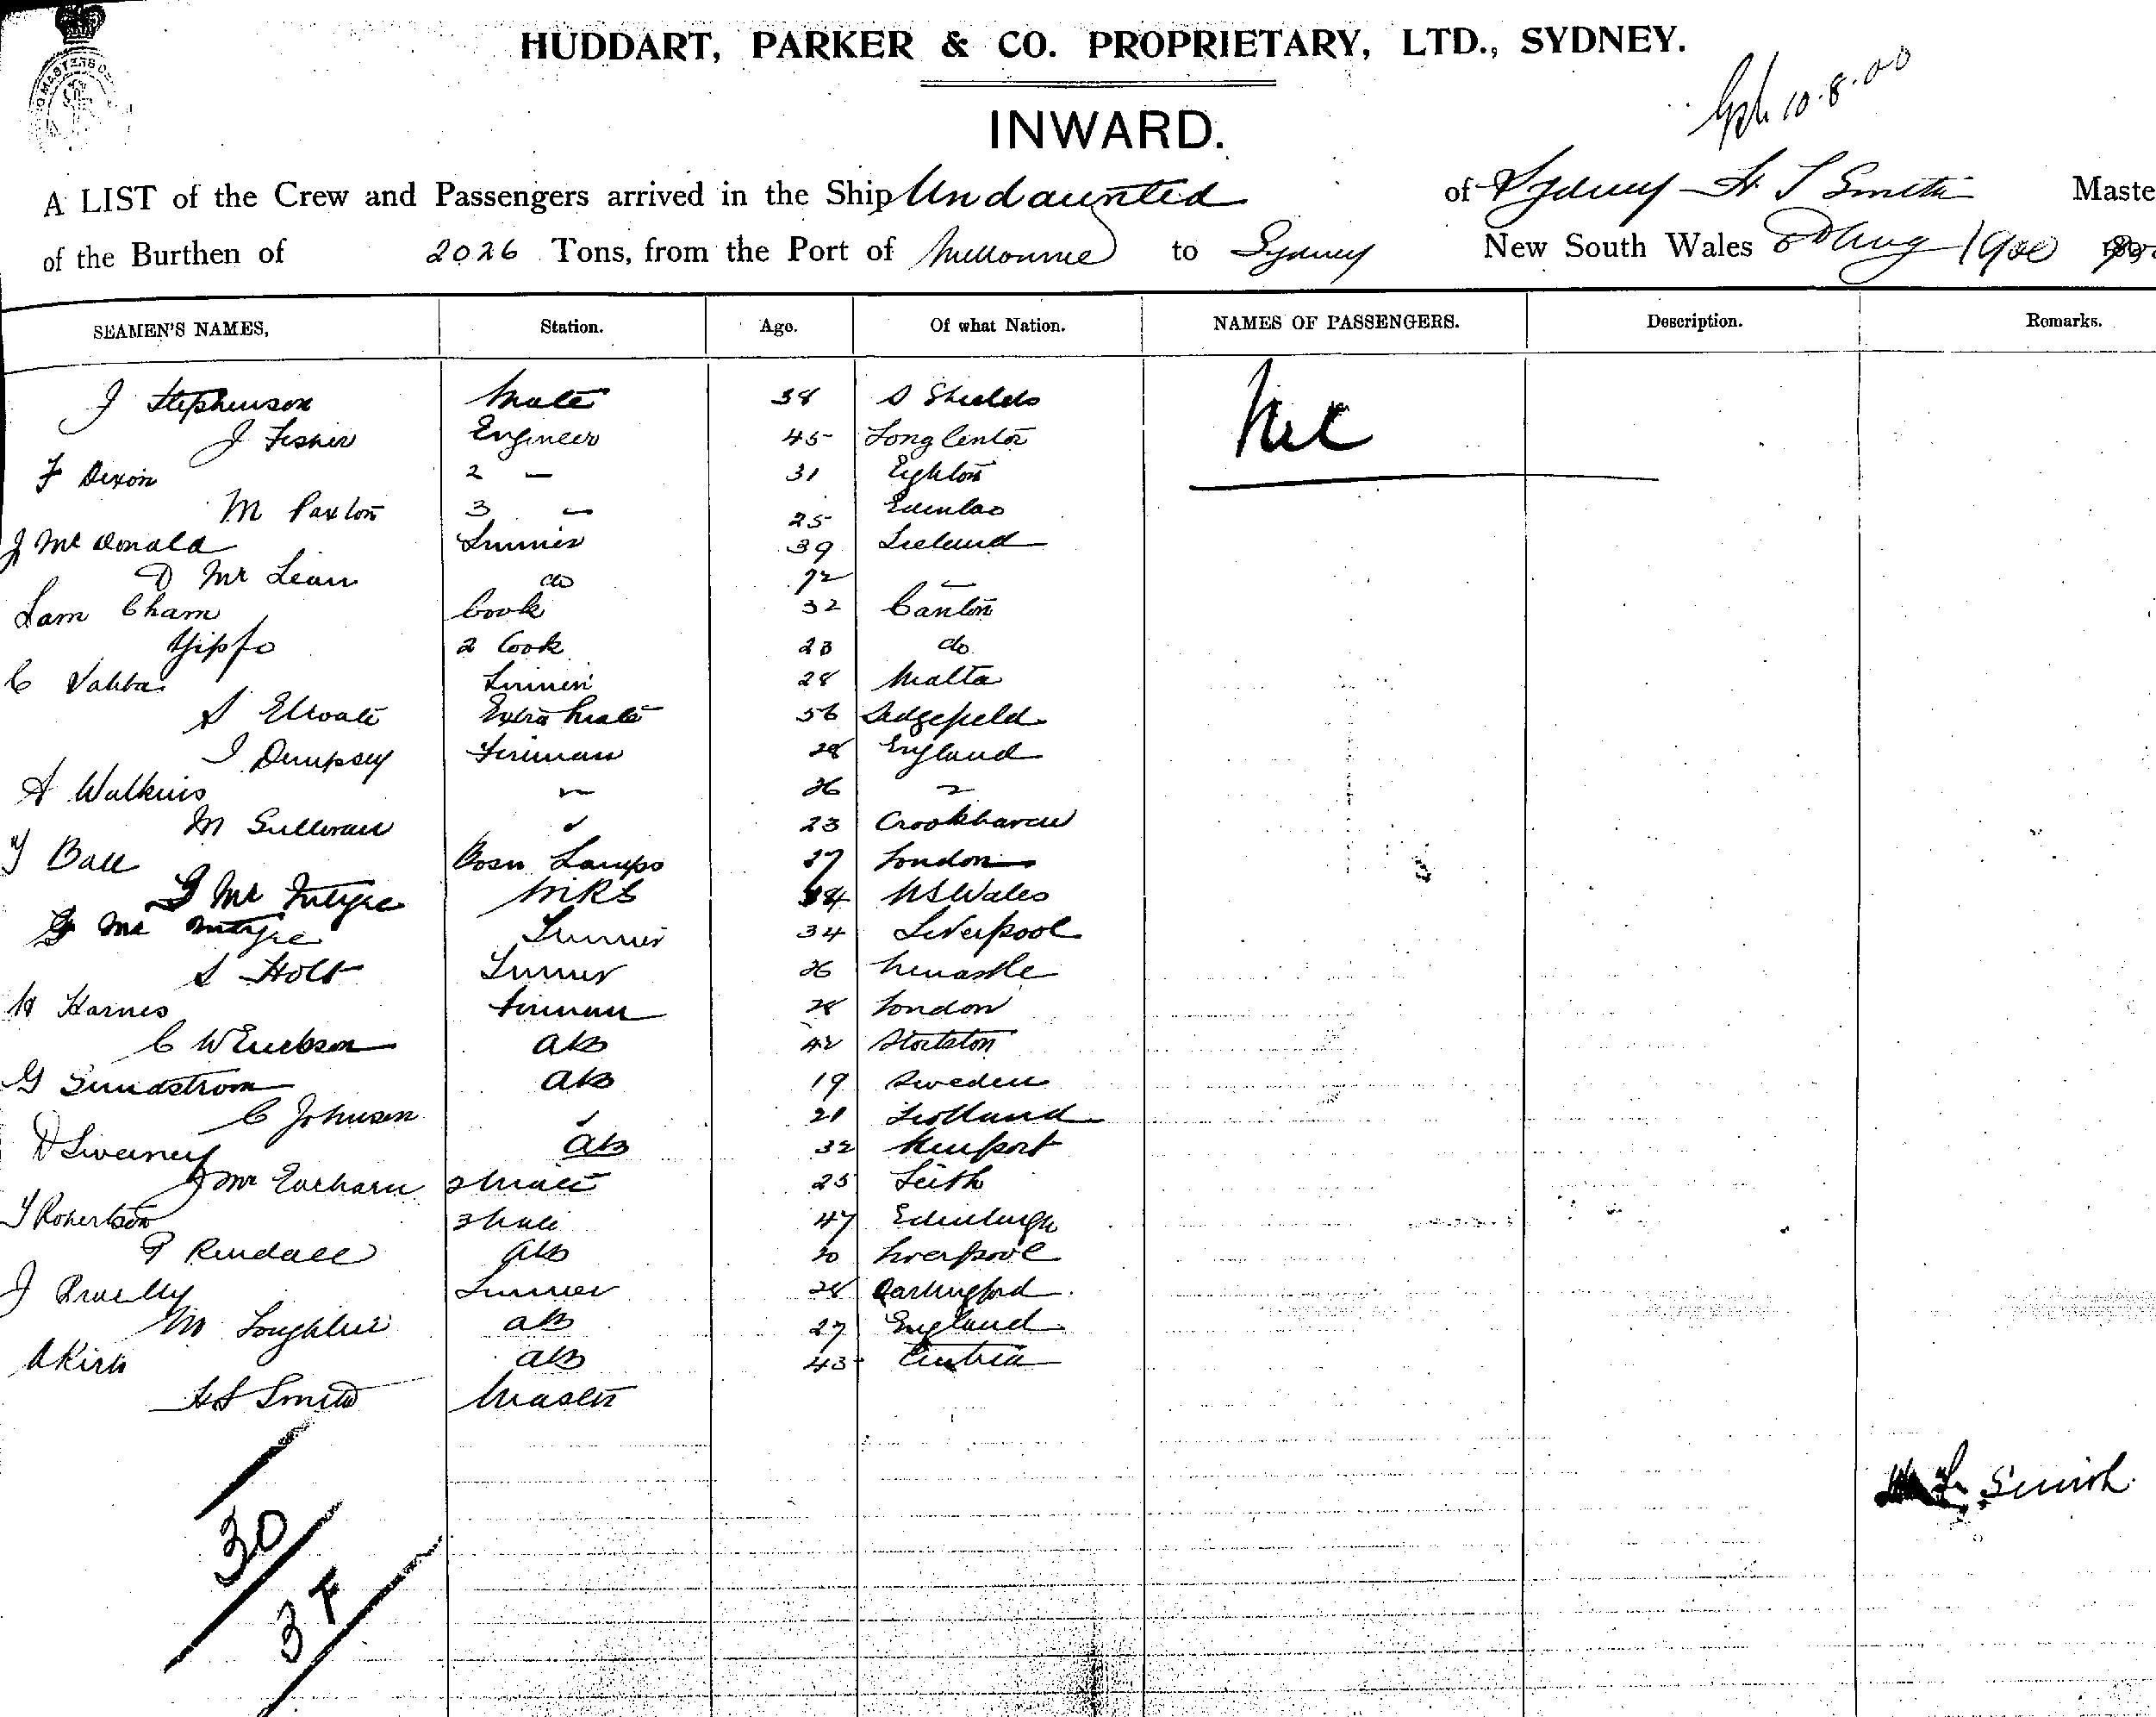 HUDDART, PARKER & CO. PROPRIETARY, LTD., SYDNEY.
10.8.00
INWARD.
A LIST of the Crew and Passengers arrived in the Ship Undaunted of Sydney H. T Smith Maste
of the Burthen of 2026 Tons, from the Port of Melbourne to Sydney New South Wales Aug 1900
SEAMEN'S NAMES, Station. Age. Of what Nation. NAMES OF PASSENGERS. Description. Remarks.
J Stephenson Mate 38 S Shields Nil
J Fisher Engineer 45
F Dixon 2 — 31 Eighton
M Paxton 3 — 25
J Mc Donald Trimmer 39 Ireland
D Mc Lean do 72 —
Lam Cham Cook 32 Canton
Yipfo 2 Cook 23 do
C Trimmer 28 Malta
S Extra Mate 56 Sedgefield
J Dempsey Fireman 28 England
A Watkins 26
M Sullivan 23 Crookhaven
T Ball Bosn Lamps 37 London
G Mc Intyre 34 N S Wales
G Mc Intyre Trimmer 34 Liverpool
S Holt Trimmer 26 Newcastle
H Karnes Fireman 28 London
C W Erickson AB 42
G Sundstrom AB 19 Sweden
C Johnson 21
D Sweeney AB 32 Newport
J Mc Eachern 2 Mate 25 Leith
T Robertson 3 Mate 47 Edinburgh
P Rendall AB 20 Liverpool
J Trimmer 28
M Loughlin AB 27 England
A Kirk AB 43
H T Smith Master
Smith
30
34